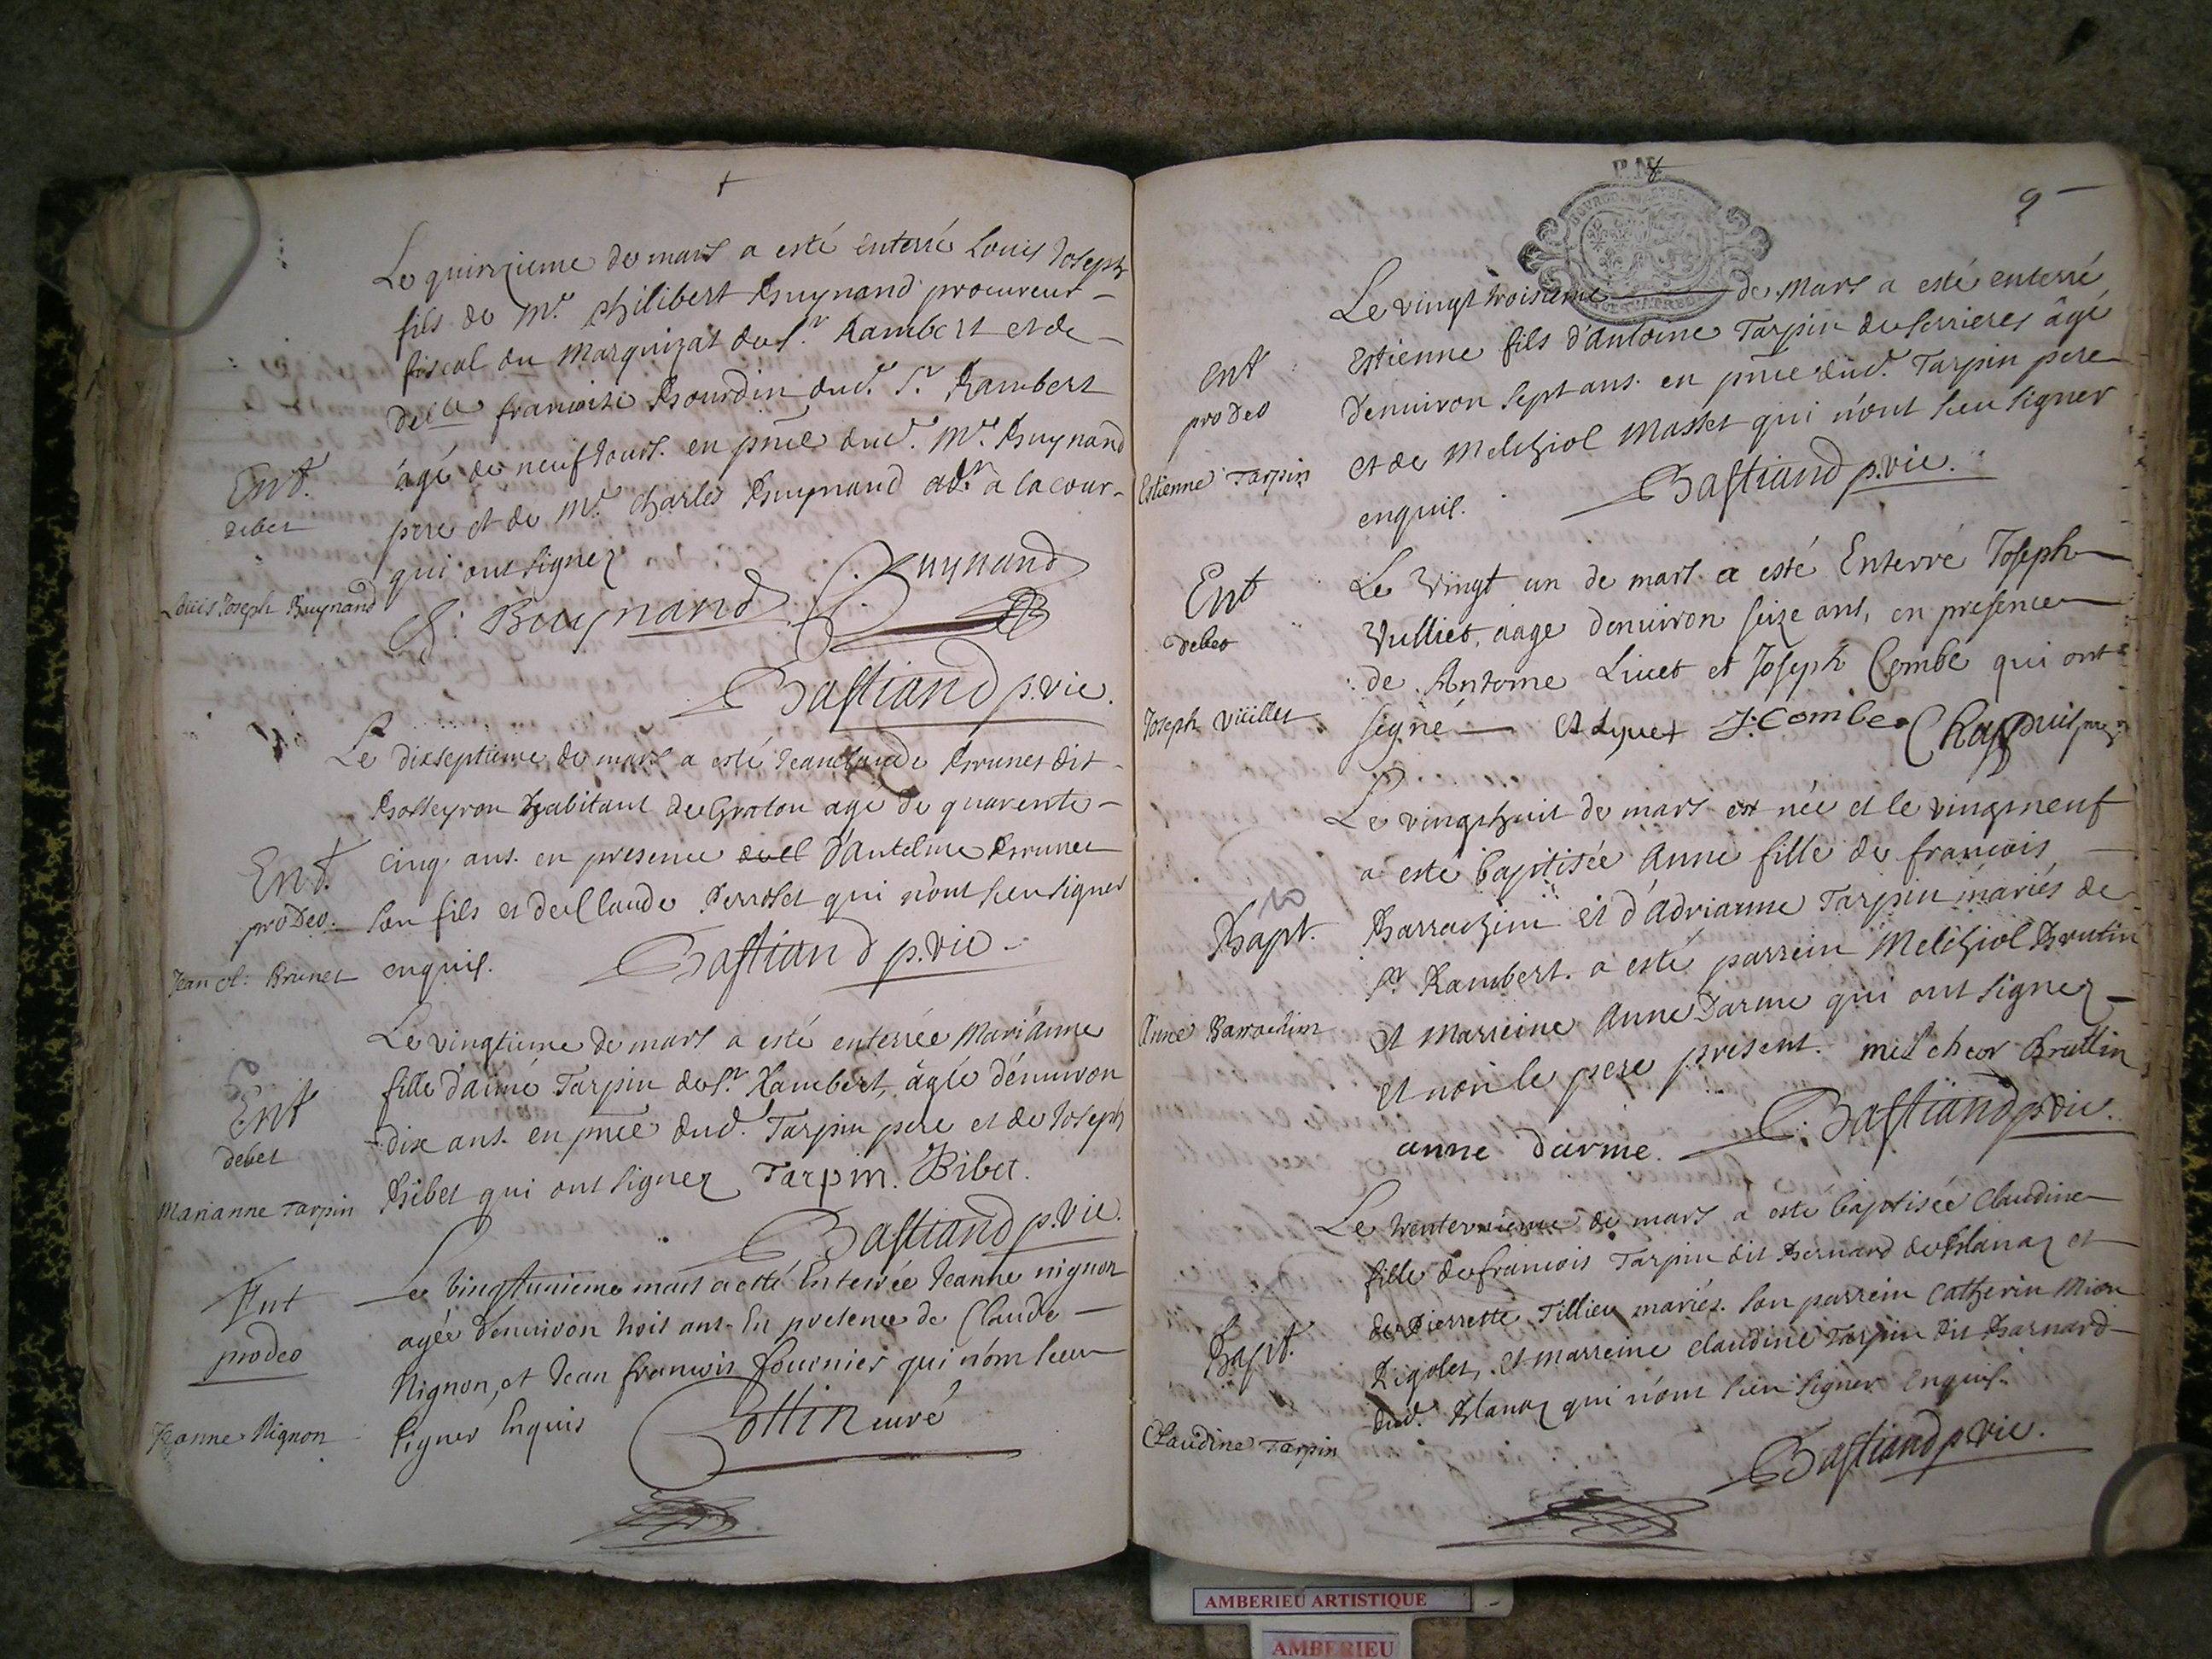 Le quinzieme de mars a esté enterré Louis Joseph
fils de Mr. Philibert Buynand procureur
fiscal du Marquizat de St. Rambert et de
delle francoise Bourdin dud. St Rambert
âgé de neuf jours. en pnce dud. Mr. Buynand
pere et de Mr. Charles Buynand adt. a la cour
qui ont signez
Ent.
debet
Louis Joseph Buynand
P. Buynand Buynand
Bastiand p.vic.
Le dixseptieme de mars a esté Jeanclaude Brunet dit
Bolleyron habitant de Graton agé de quarente
cinq ans. en presence d'Antelme Brunet
son fils et de Claude Perroset qui n'ont sceu signer
enquis. Bastiand p.vic
Ent.
pro Deo.
Jean Cl: Brunet
Le vingtieme de mars a esté enterrée Marianne
fille d'aimé Tarpin de St. Rambert, âgée d'environ
dix ans. en pnce dud. Tarpin pere et de Joseph
Bibet qui ont signez Tarpin. Bibet.
Bastiand p.vic.
Ent
debet
Marianne Tarpin
Le vingtunieme mars a esté Enterrée Jeanne nignon
agée d'environ trois ans. En presence de Claude
Nignon, et Jean francois fournier qui n'ont sceu
signer Enquis Cottin curé
Ent
pro deo
Jeanne Nignon
9
Le vingt troisieme de Mars a esté enterré
Estienne fils d'Antoine Tarpin de serrieres âgé
denviron sept ans. en pnce dud. Tarpin pere
et de Melchiol Masset qui n'ont sceu signer
enquis. Bastiand p.vic.
Ent
pro Deo
Estienne Tarpin
Le Vingt un de mars a esté Enterré Joseph
Vulliet, aage denviron seize ans, en presence
de Antoine Livet et Joseph Combe qui ont
signé A Lyvet J. Combe Chappuis
Ent
debet
Joseph Vieillet
Le vingthuit de mars est née et le vingtneuf
a esté baptisée Anne fille de francois
Barrachin et d'Adrianne Tarpin mariés de
St Rambert. a esté parrein Melchiol Brutin
et Marreine Anne Darme qui ont signez
et non le pere present. mel cheor Bruttin
anne darme. Bastiand p.vic.
10
Bapt.
Anne Barrachin
Le trenteunieme de mars a esté baptisée Claudine
fille de francois Tarpin dit Bernard de Blanaz et
de Pierrette Tillieu mariés. son parrein Catherin Mion
Rigolet, et marreine claudine Tarpin dit Barnard
dud. Blanaz qui n'ont sceu signer Enquis.
Bastiand p.vic.
Bapt.
Claudine Tarpin
AMBERIEU ARTISTIQUE
AMBERIEU